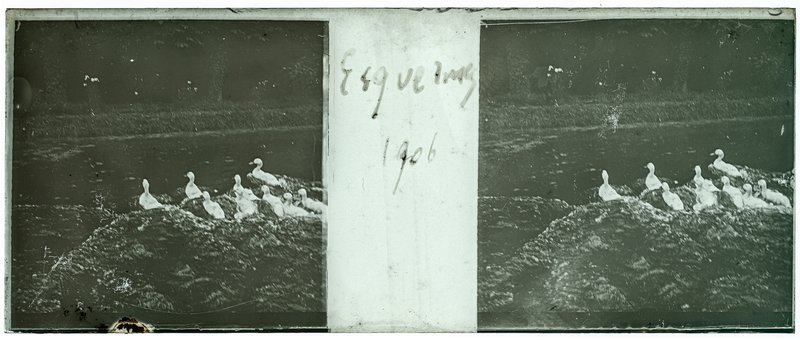 Esquermes
1906